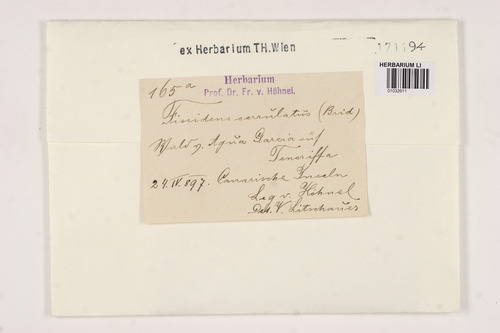 ex Herbarium TH. Wien
94
HERBARIUM LI
01032611
165a
Herbarium
Prof. Dr. Fr. v. Höhnel.
Fissidens serrulatus (Brid)
Wald v. Aqua Garcia auf
Teneriffa
24.IV.897. Canarische Inseln
Leg v. Höhnel
Det. V. Litschauer